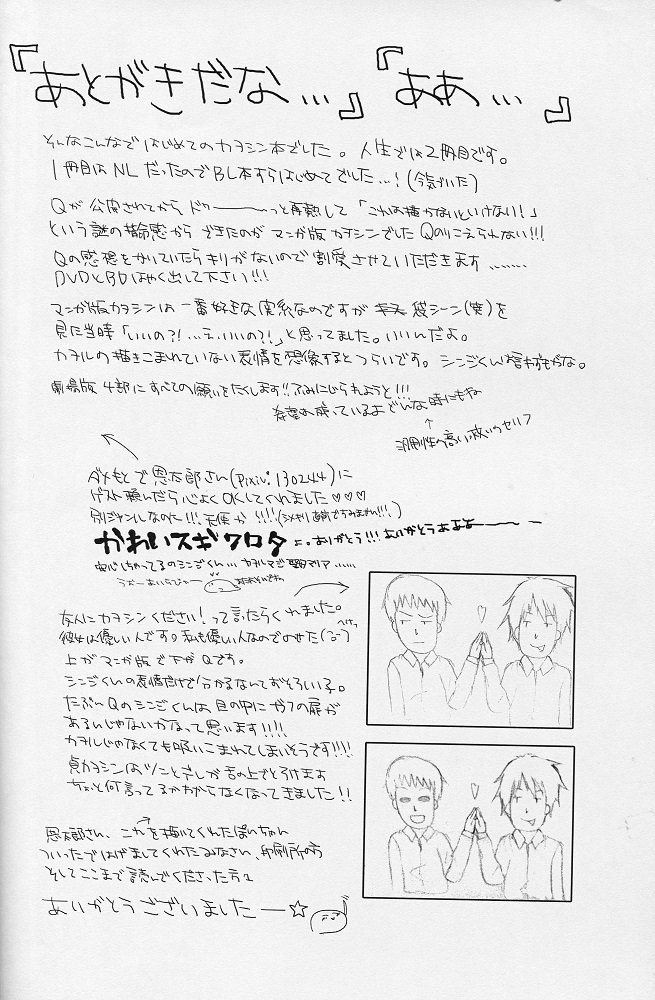 『あとがきだな…』『ああ…』
そんなこんなではじめてのカヲシン本でした。人生では2冊目です。
1冊目はNLだったのでBL本すらはじめてでした…!(今気づいた)
Qが公開されてからドゥーーーっと再熱して「これは描かないといけない!」
という謎の指令感からできたのがマンガ版カヲシンでしたQのりこえられない!!!
Qの感想をかいていたらキリがないので割愛させていただきます………
DVDとBDはやく出して下さい!!!
マンガ版カヲシンは一番好きな関係なのですが 袋シーン(笑)を
見た当時「いいの?!…え、いいの?!」と思ってました。いいんだよ。
カヲルの描きこまれていない表情を想像するとつらいです。シンジくん
劇場版4部にすべての願いをたくします!!ふみにじられようと!!!
希望は残っているよどんな時にもね
↑
汎用性の高い救いのセリフ
ダメもとで恩太郎さん(pixiv:130244)に
ゲスト頼んだら心よくOKしてくれました♡♡♡
別ジャンルなのに!!!天使か!!!!(シメキリ直前ですみません!!!)
かわいスギワロタ よ。ありがとう!!!ありがとうあああーーー
安心しちゃってるのシンジくん…カヲルマジ聖母マリア……
友人にカヲシンください!って言ったらくれました。
彼女は優しい人です。私も優しい人なのでのせた
上がマンガ版で下がQです。
シンジくんの表情だけで分かるなんておそろしい子。
たぶんQのシンジくんは目の中にガフの扉が
あるんじゃないかなって思います!!!!
カヲルじゃなくても吸いこまれてしまいそうです!!!!
貞カヲシンはツンとさしが舌の上でとろけます
ちょっと何言ってるかわからなくなってきました!!
恩太郎さん、これを描いてくれたぽいちゃん
ついったではげましてくれたみなさん、印刷所の方
そしてここまで読んでくださった方々
ありがとうございましたー☆